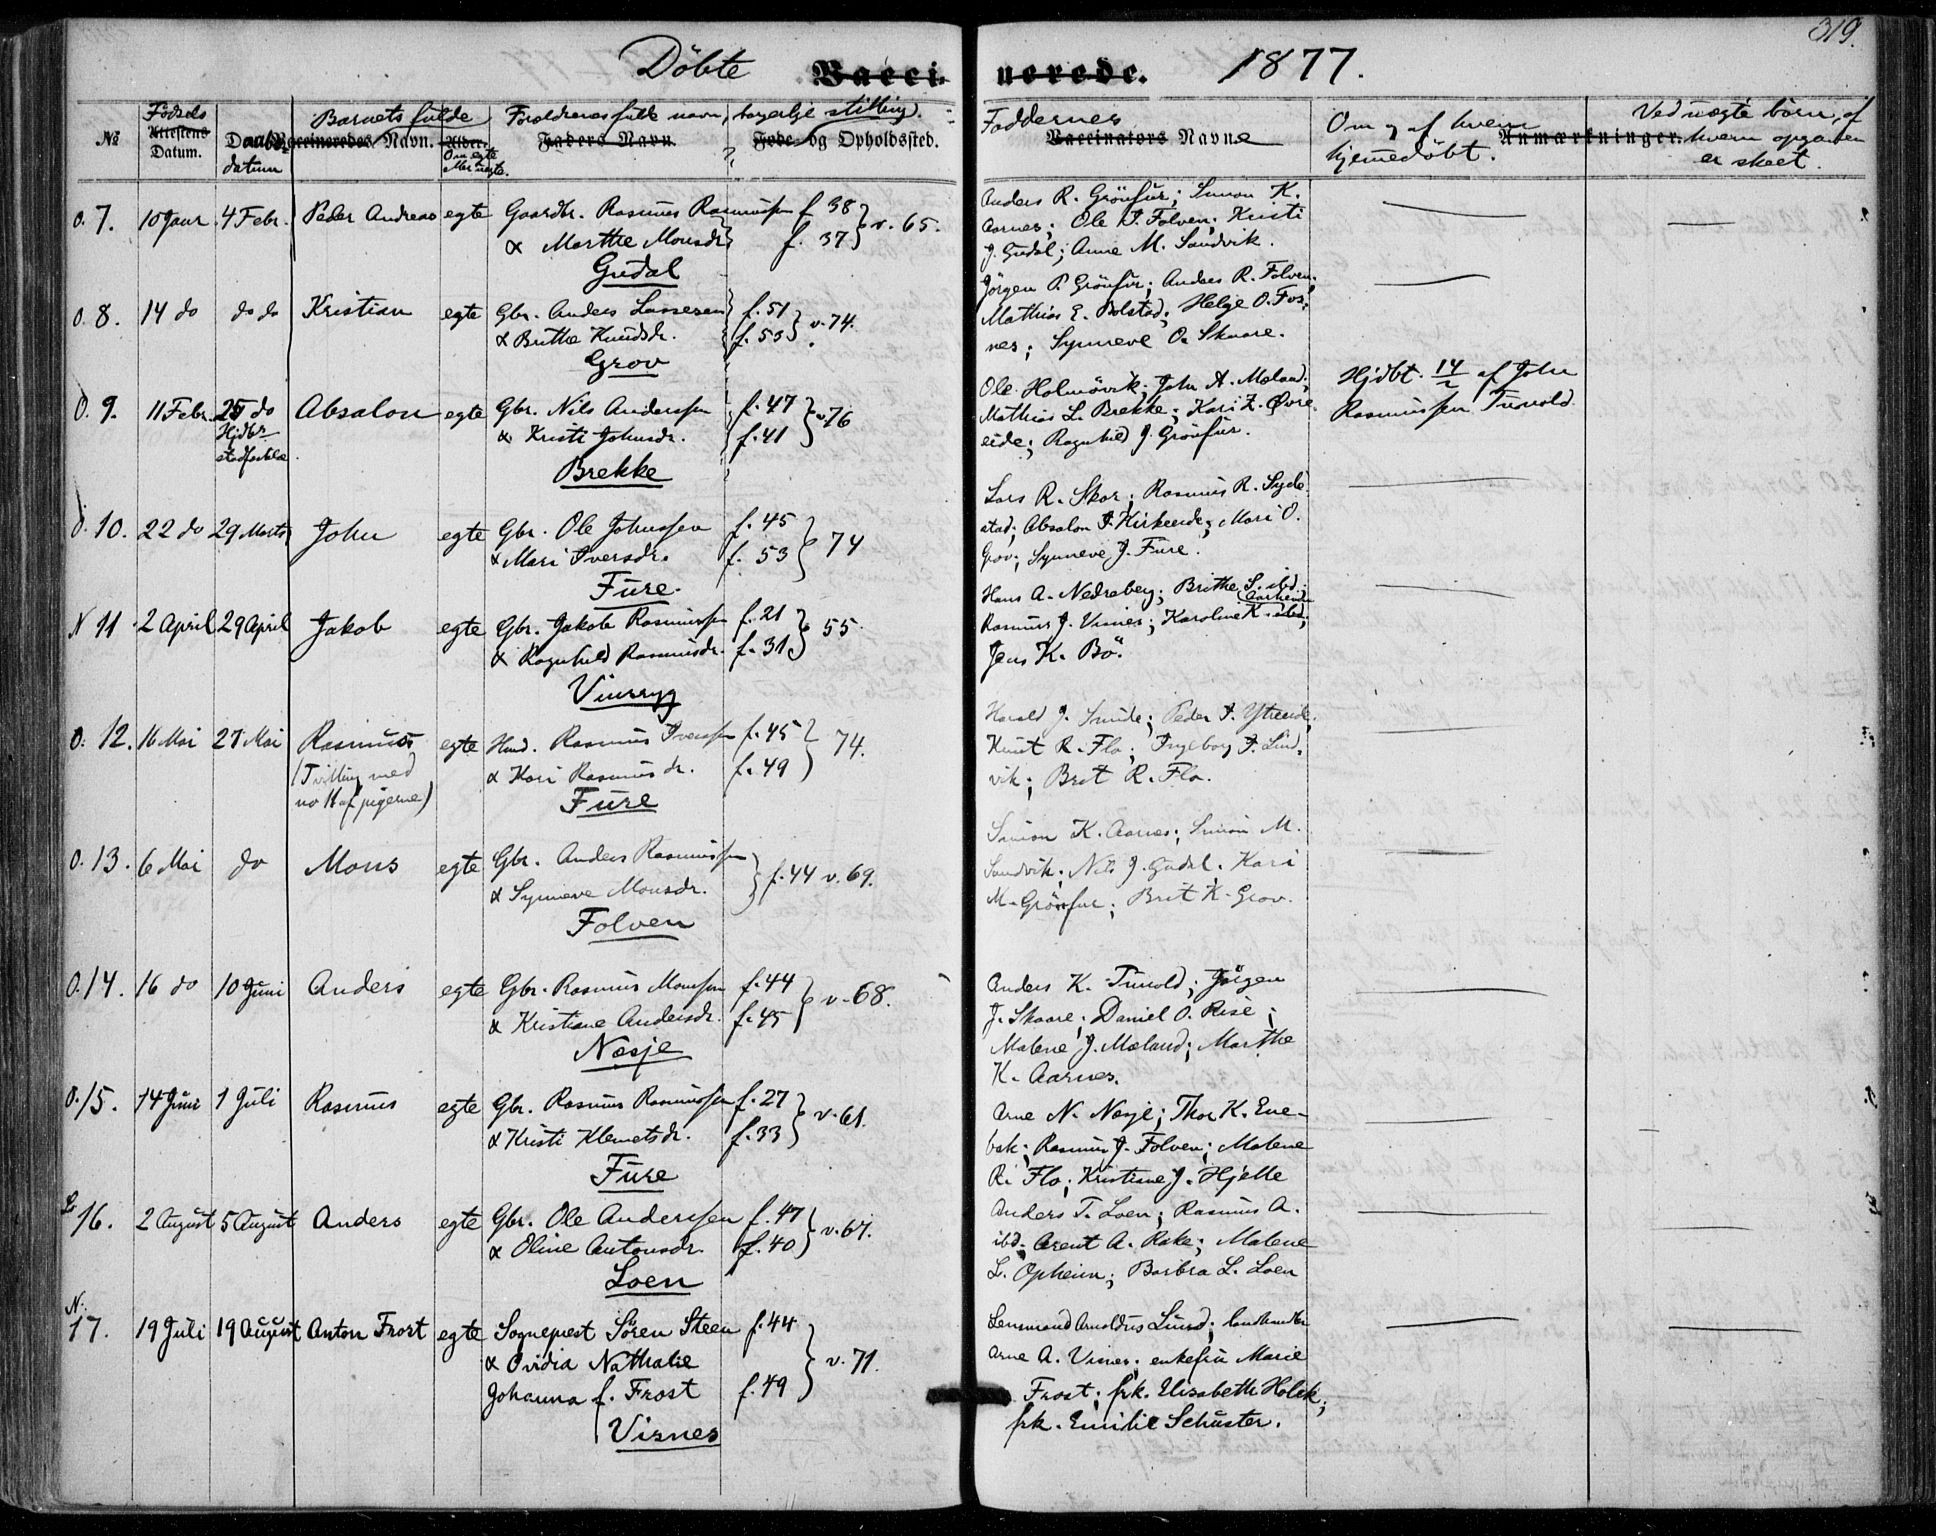 319.
Döbte Vacci- nerede. 1877.
No
Födsels
Attestens
Datum.
Daabs-
datum
Barnets fulde
Vaccineredes Navn.
Alder.
Om egte
eller uegte.
Forældrenes fulde navn, borgerlige stilling
Faders Navn. Føde- og Opholdssted.
Faddernes
Vaccinators Navne
Om og af hvem
hjemmedöbt.
Ved uegte börn, af
Anmærkninger. hvem opgaven
er skeet.
O. 7. 10 Janr 4 Febr. Peder Andreas egte Gaardbr. Rasmus Rasmussen f. 38
& Marthe Monsdr. f. 37 v. 65.
Gudal
Anders R. Grönfur; Simon K.
Aarnes; Ole I. Folven; Kristi
J. Gudal; Anne M. Sandvik.
O. 8. 14 do do do Kristian egte Gbr. Anders Lassesen f. 51
& Brithe Knudsdr. f. 53 v. 74.
Grov
Jörgen P. Grönfur; Anders R. Folven;
Mathias E. Bolstad; Helge O. Fos-
nes; Synneve O. Skaare.
O. 9. 11 Febr. 25 do Absalon egte Gbr. Nils Anderssen f. 47
Hjdbn
stadfæstelse
& Kristi Johnsdr. f. 41 v. 76
Brekke
Ole Holmövik; John A. Mæland;
Mathias L. Brekke; Kari Z. Øvre-
eide; Ragnhild J. Grönfur.
Hjdbt. 14/2 af John
Rasmussen Tunold.
O. 10. 22 do 29 Marts John egte Gbr. Ole Johnssen f. 45
& Mari Iversdr. f. 53 74
Fure.
Lars R. Skor; Rasmus R. Syde-
stad; Absalon I. Kirkeeide; Mari O.
Grov; Synneve J. Fure.
N 11. 2 April 29 April Jakob egte Gbr. Jakob Rasmussen f. 21
& Ragnhild Rasmusdr. f. 31 55.
Vinsryg
Hans A. Nedreberg; Brithe S. ibd;
Rasmus J. Visnes; Karoline K. ibd;
Jens K. Bö.
O. 12. 16 Mai 27 Mai Rasmus egte Hmd. Rasmus Iverssen f. 45
(Tvilling med
no 11 af pigerne)
& Kari Rasmusdr. f. 49 74.
Fure
Harald J. Sunde; Peder I. Ytreeide;
Knut R. Flo; Ingeborg I. Lind-
vik; Brit R. Flo.
O. 13. 6 Mai do Mons egte Gbr. Anders Rasmussen
& Synneve Monsdr. f. 44 v. 69.
Folven
Simon K. Aarnes; Simon M.
Sandvik; Nils J. Gudal; Kari
M. Grönfur; Brit K. Grov.
O. 14. 16 do 10 Juni Anders egte Gbr. Rasmus Monssen f. 44
& Kristiane Andersdr. f. 45 v. 68.
Nesje
Anders K. Tunold; Jörgen
J. Skaare; Daniel O. Rise;
Malene J. Mæland; Marthe
K. Aarnes.
O. 15. 14 Juni 1 Juli Rasmus egte Gbr. Rasmus Rasmussen f. 27
& Kristi Klemetsdr. f. 33 v. 61.
Fure
Arne N. Nesje; Thor K. Ene-
bak; Rasmus J. Folven; Malene
R. Flo; Kristiane J. Hjelle
Lo 16. 2 August 5 August Anders egte Gbr. Ole Anderssen f. 47
& Oline Antonsdr. f. 40 v. 67.
Loen
Anders T. Loen; Rasmus A.
ibd; Arent A. Rake; Malene
L. Opheim; Barbra L. Loen
N. 17. 19 Juli 19 August Anton Frost egte Sognepræst Sören Steen f. 44
& Ovidia Nathalie
Johanna f. Frost f. 49 v. 71.
Visnes
Lensmand Arnoldus Lund; landhandler
Arne A. Visnes; enkefru Marie
Frost; frk. Elisabeth Holck;
frk. Emilie Schuster.